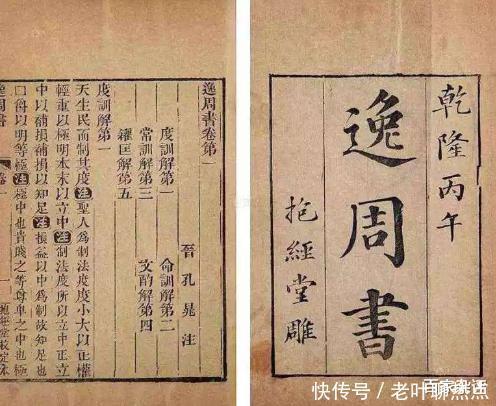 乾隆丙午
逸周書
抱經堂雕
逸周書卷第一
晉 孔晁 注
度訓解第一 命訓解第二
常訓解第三 文酌解第四
糴匡解第五
度訓解第一
天生民而制其度注聖人爲制法度度小大以正權
輕重以極明本末以立中注制法度所以立中正立
中以補損補損以知足注損益以中爲制故知足也
□爵以明等極注極中也貴賤之等尊卑之中也極
逸周書 卷一 抱經堂校定本
快传号 / 老叶聊